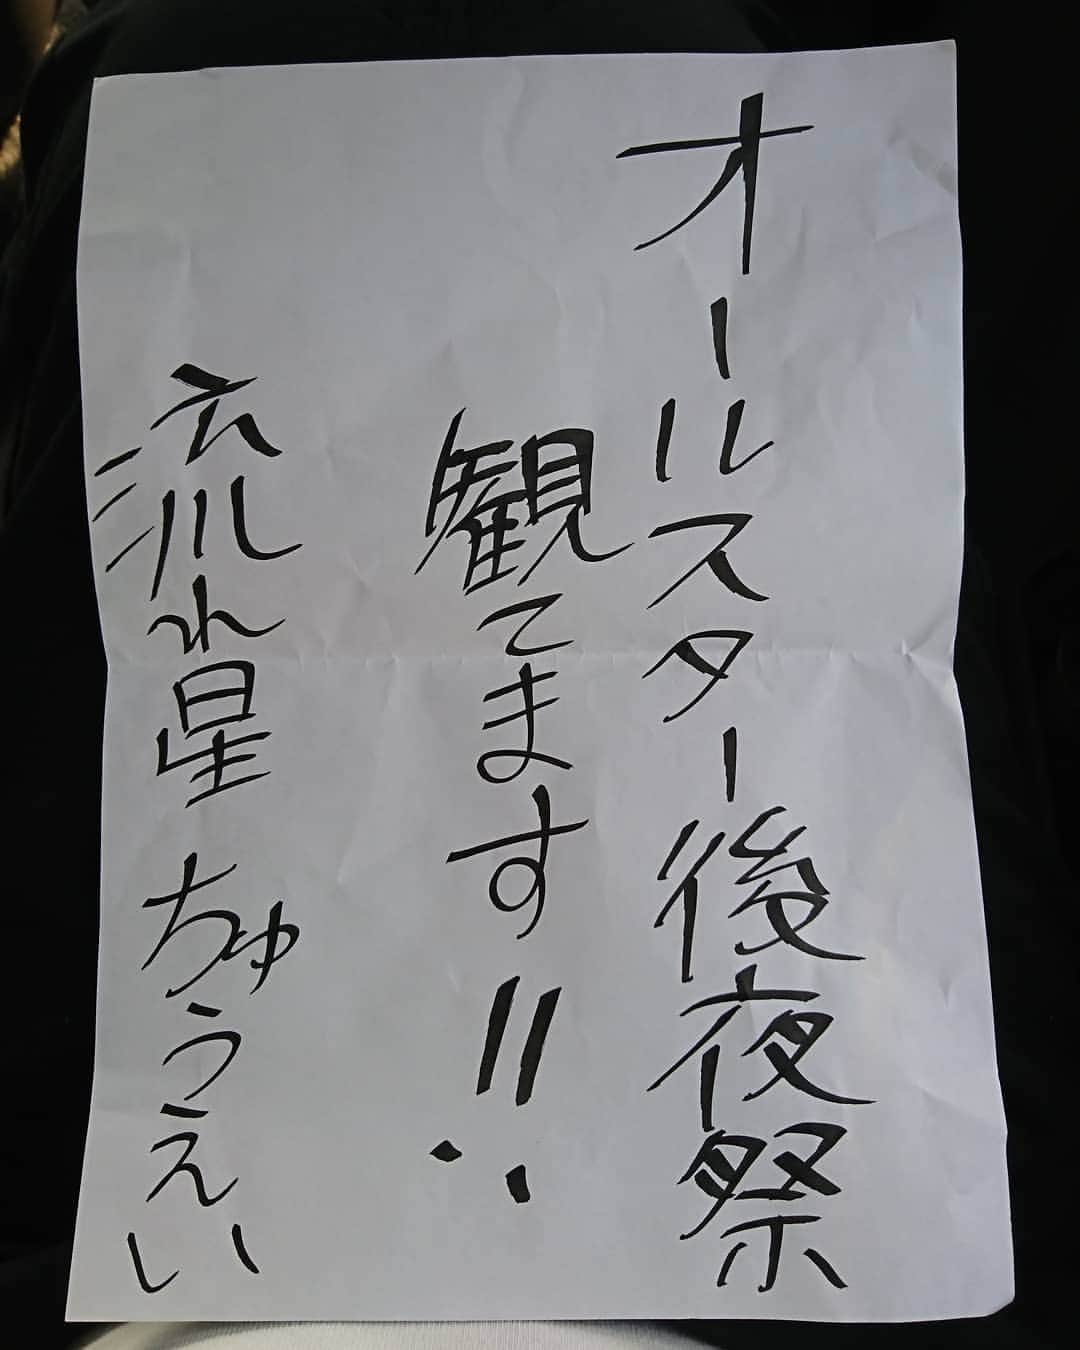 オールスター後夜祭
観てます!!
流れ星ちゅうえい